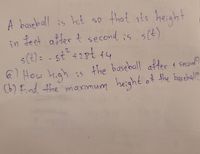 A baseball is hit so that its height
in feet after t second, is s(t)
s(t) = -5t² +28t +4
(a) How high is the baseball after 1 second?
(b) Find the maximum height of the baseball?